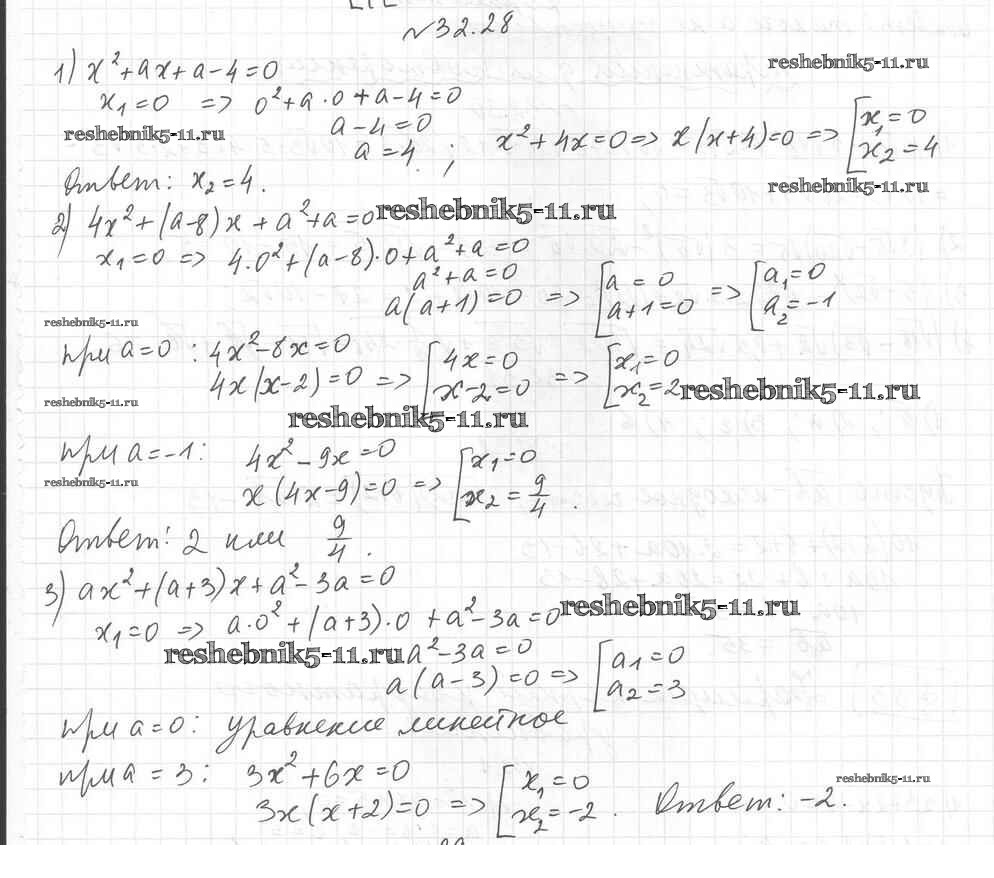 №32.28
1) x²+ax+a-4=0
reshebnik5-11.ru
x₁=0 => 0²+a·0+a-4=0
reshebnik5-11.ru
a-4=0
a=4; x²+4x=0 => x(x+4)=0 => [x₁=0
x₂=4
Ответ: x₂=4.
reshebnik5-11.ru
2) 4x²+(a-8)x+a²+a=0
reshebnik5-11.ru
x₁=0 => 4·0²+(a-8)·0+a²+a=0
a²+a=0
a(a+1)=0 => [a=0 => [a₁=0
a+1=0 a₂=-1
reshebnik5-11.ru
при a=0: 4x²-8x=0
4x(x-2)=0 => [4x=0 => [x₁=0
x-2=0 x₂=2
reshebnik5-11.ru
reshebnik5-11.ru
reshebnik5-11.ru
при a=-1: 4x²-9x=0
x(4x-9)=0 => [x₁=0
x₂=9/4.
reshebnik5-11.ru
Ответ: 2 или 9/4.
3) ax²+(a+3)x+a²-3a=0
x₁=0 => a·0²+(a+3)·0+a²-3a=0
reshebnik5-11.ru
reshebnik5-11.ru
a²-3a=0
a(a-3)=0 => [a₁=0
a₂=3
при a=0: уравнение линейное
при a=3: 3x²+6x=0
3x(x+2)=0 => [x₁=0
x₂=-2. Ответ: -2.
reshebnik5-11.ru